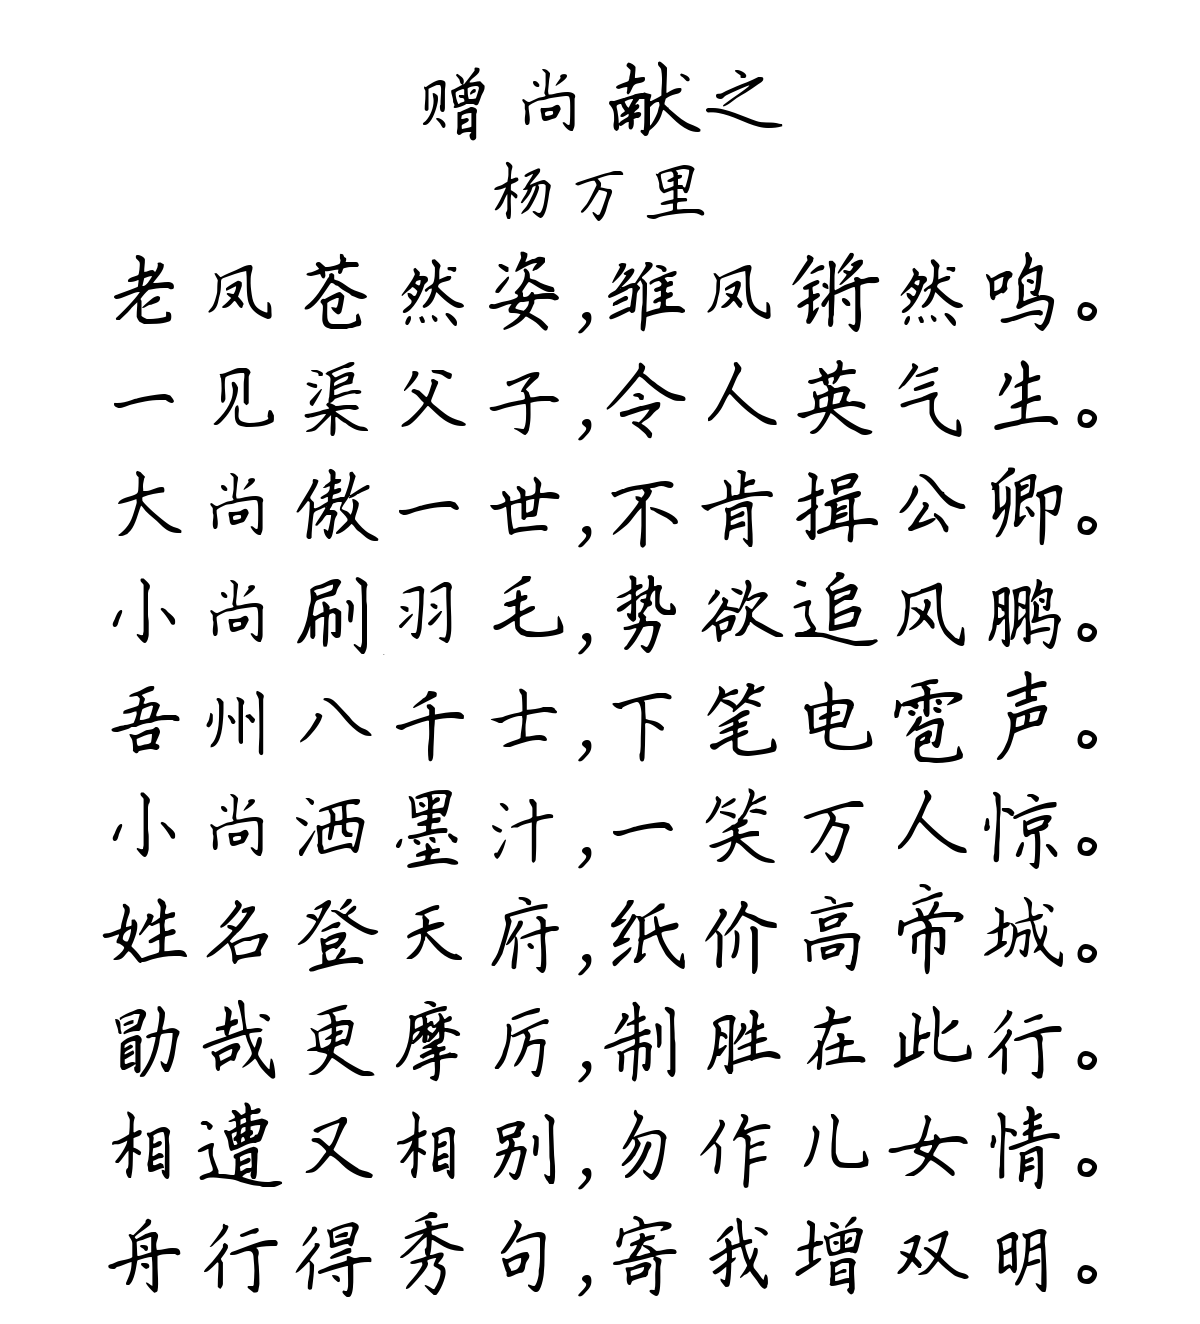 赠尚献之
杨万里
老凤苍然姿,雏凤锵然鸣。
一见渠父子,令人英气生。
大尚傲一世,不肯揖公卿。
小尚刷羽毛,势欲追风鹏。
吾州八千士,下笔电雹声。
小尚洒墨汁,一笑万人惊。
姓名登天府,纸价高帝城。
勖哉更摩厉,制胜在此行。
相遭又相别,勿作儿女情。
舟行得秀句,寄我增双明。